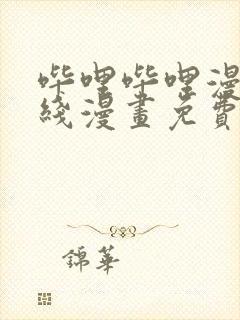 哔哩哔哩漫
綫漫畫免費
錦華